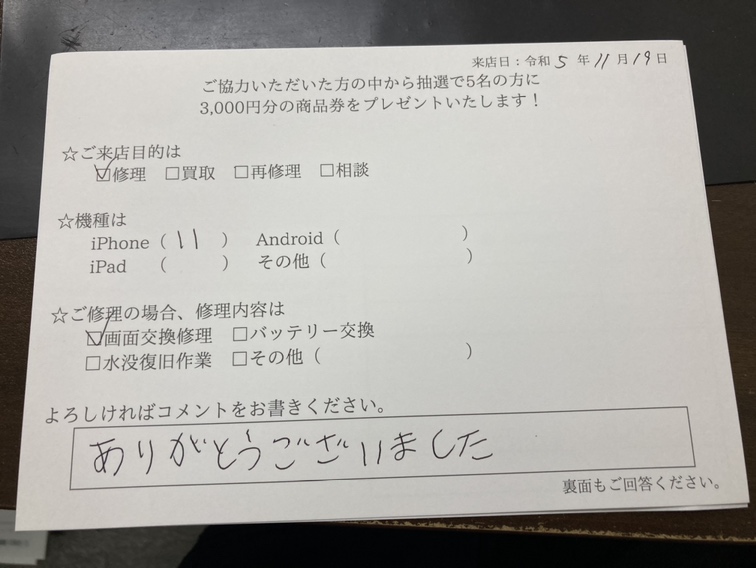 来店日：令和 5 年 11 月 19 日
ご協力いただいた方の中から抽選で5名の方に
3,000円分の商品券をプレゼントいたします！
☆ご来店目的は
☑修理 □買取 □再修理 □相談
☆機種は
iPhone（ 11 ） Android（ ）
iPad （ ） その他（ ）
☆ご修理の場合、修理内容は
☑画面交換修理 □バッテリー交換
□水没復旧作業 □その他（ ）
よろしければコメントをお書きください。
ありがとうございました
裏面もご回答ください。